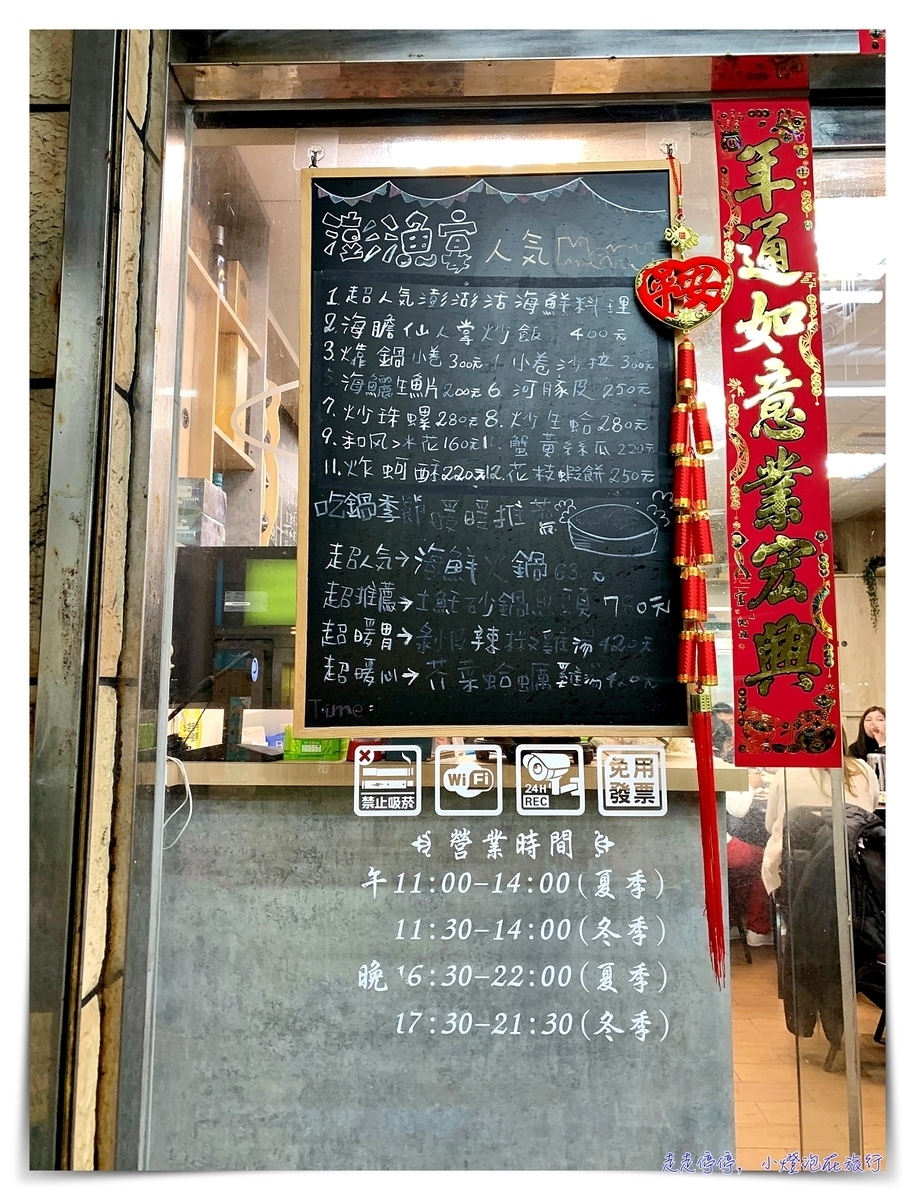 澎漁宴 人気 Menu
1.超人気澎湖活海鮮料理
2.海膽仙人掌炒飯 400元
3. 鍋小卷300元 小卷沙拉 300元
5.海鱺生魚片200元 6.河豚皮 250元
7.炒珠螺280元 8.炒生蛤280元
9.和风 花160元 蟹黃絲瓜 220元
11.炸蚵酥220元 12.花枝蝦餅250元
吃鍋季節暖暖推薦
超人気→海鮮火鍋 元
超推薦→ 砂鍋 頭 元
超暖胃→剝皮辣椒雞湯420元
超暖心→芥菜蛤蠣雞湯420元
Time:
平安
羊通如意業宏興
禁止吸菸
WiFi
24H
REC
免用
發票
營業時間
午11:00-14:00(夏季)
11:30-14:00(冬季)
晚16:30-22:00(夏季)
17:30-21:30(冬季)
走走停停，小燈泡在旅行